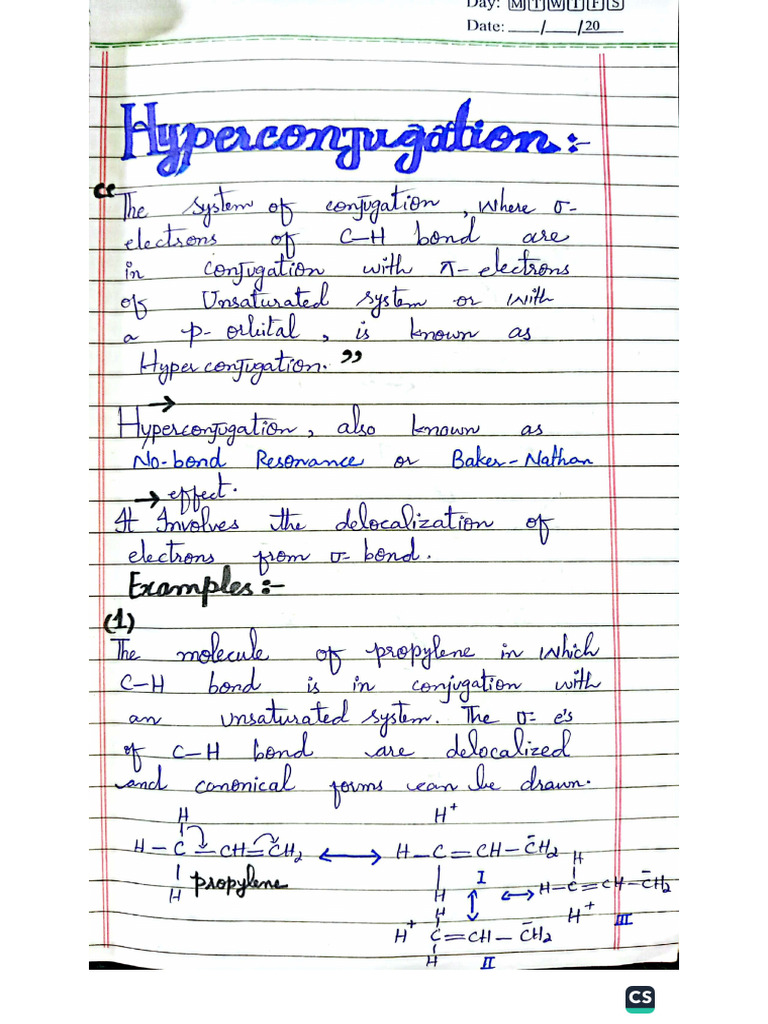 Day: M T W T F S
Date: ___/___/20___
Hyperconjugation:-
"The system of conjugation, where σ-
electrons of C-H bond are
in conjugation with π-electrons
of Unsaturated system or with
a p-orbital, is known as
Hyperconjugation."
→
Hyperconjugation, also known as
No-bond Resonance or Baker-Nathan
→ effect.
It Involves the delocalization of
electrons from σ-bond.
Examples:-
(1)
The molecule of propylene in which
C-H bond is in conjugation with
an unsaturated system. The σ- e's
of C-H bond are delocalized
and canonical forms can be drawn.
H H⁺
H-C-CH=CH₂ ↔ H-C=CH-C̄H₂
H
propylene
H
I
↔ H-C=CH-C̄H₂
H
H⁺
III
H
↕
H
H⁺ C=CH-C̄H₂
H
II
CS